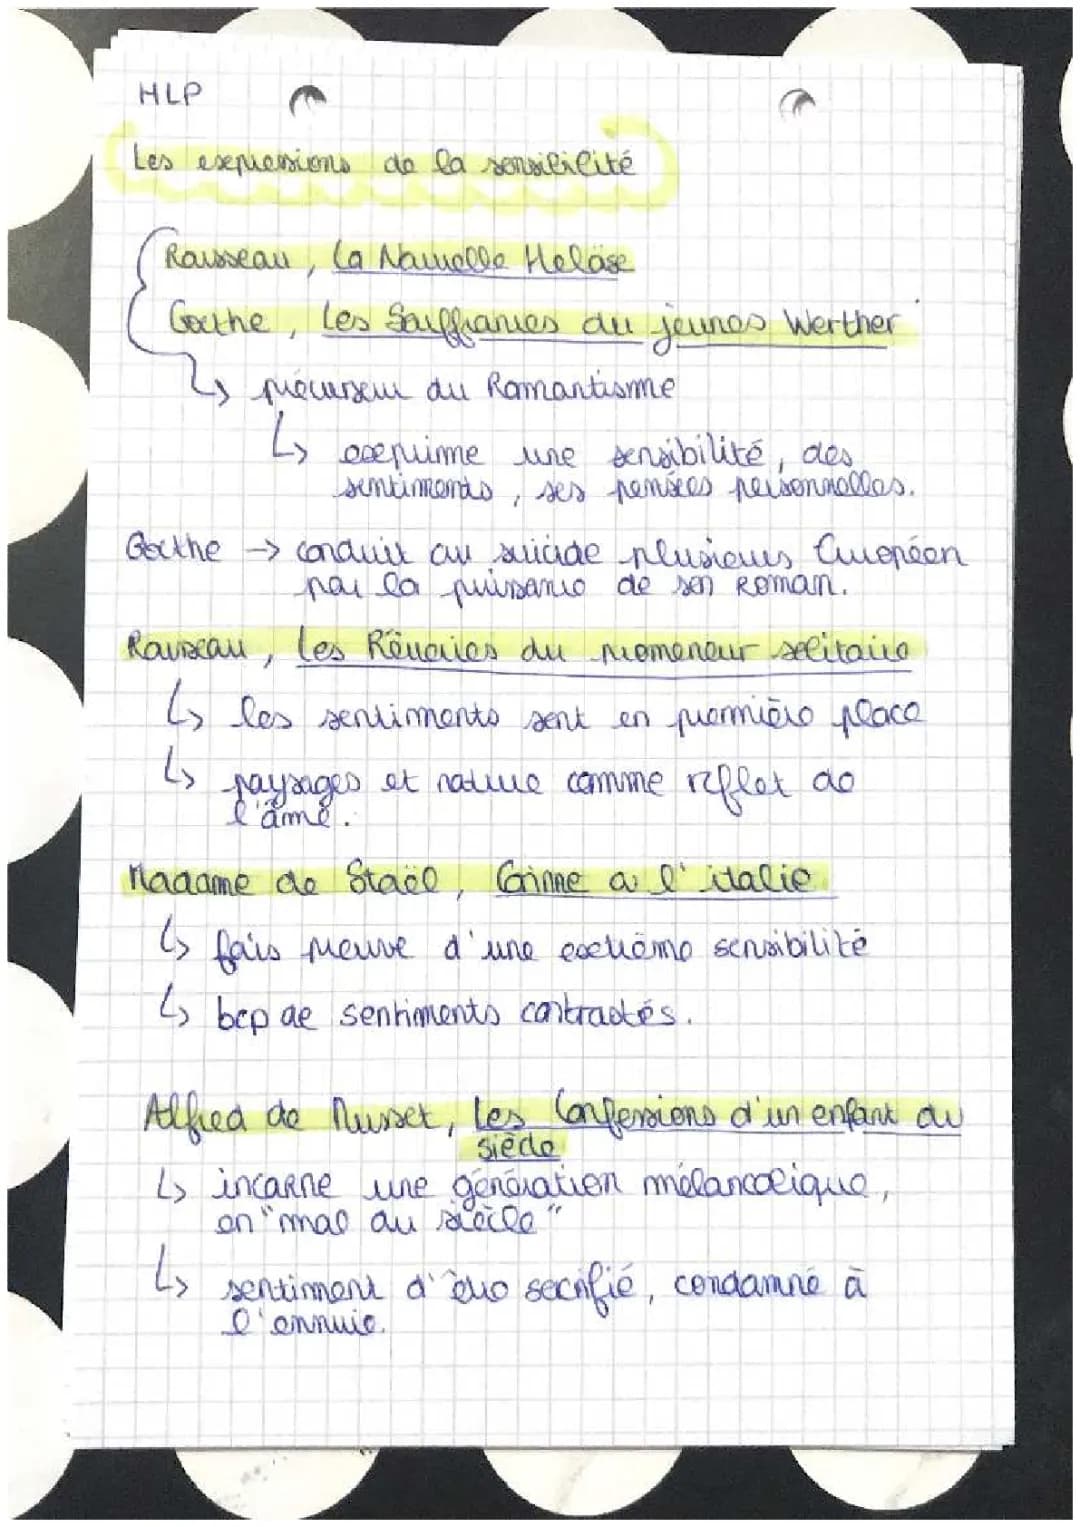 HLP
Les expressions de la sensibilité
Rousseau, La Nouvelle Heloïse
Goethe, Les Souffrances du jeunes Werther
↳ précurseur du Romantisme
↳ exprime une sensibilité, des
sentiments, ses pensées personnelles.
Goethe → conduit au suicide plusieurs Européen
par la puissance de son roman.
Rousseau, Les Rêveries du promeneur solitaire
↳ les sentiments sont en première place
↳ paysages et nature comme reflet de
l'âme.
Madame de Staël, Corinne a l'italie
↳ fais preuve d'une extrême sensibilité
↳ bcp de sentiments contrastés.
Alfred de Musset, Les Confessions d'un enfant du
siècle
↳ incarne une génération mélancolique,
en "mal du siècle"
↳ sentiment d'être sacrifié, condamné à
l'ennuie.